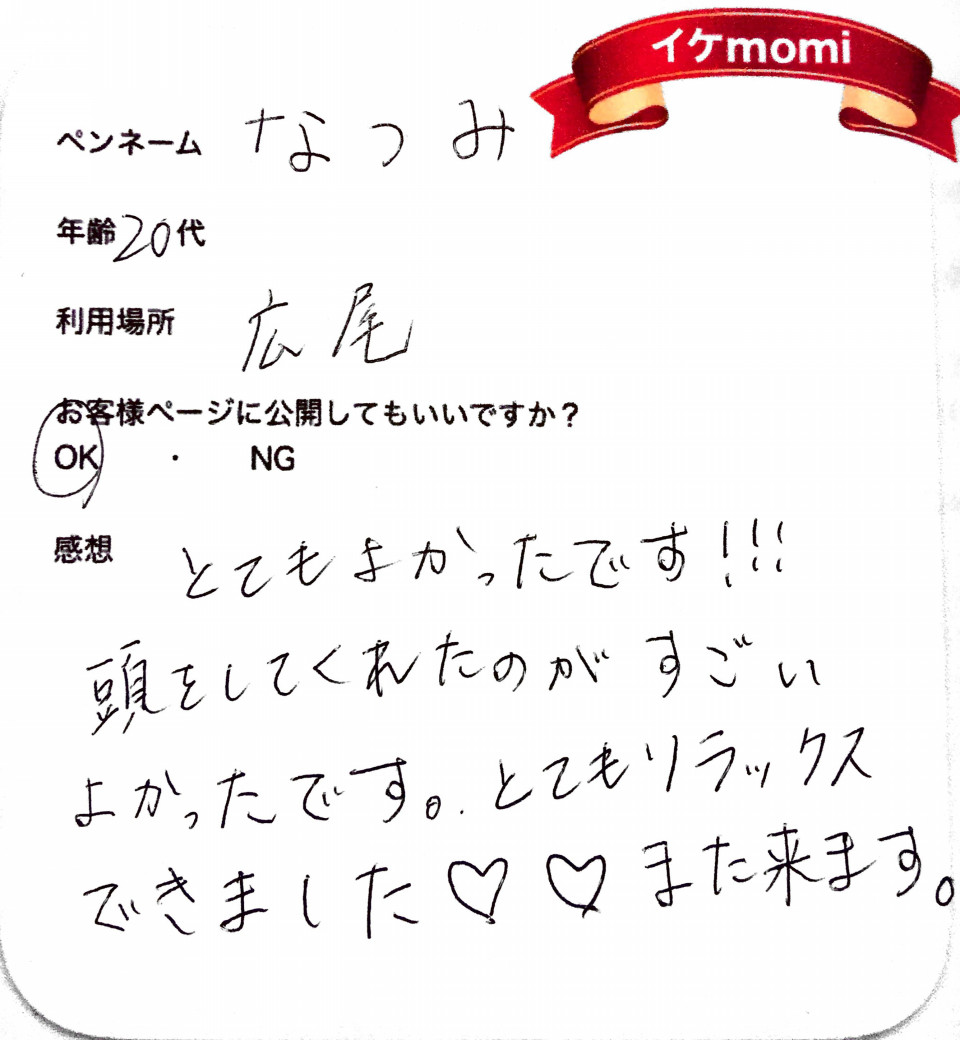 イケmomi
ペンネーム なつみ
年齢20代
利用場所 広尾
お客様ページに公開してもいいですか？
OK ・ NG
感想 とてもよかったです!!!
頭をしてくれたのがすごい
よかったです。とてもリラックス
できました♡♡また来ます。